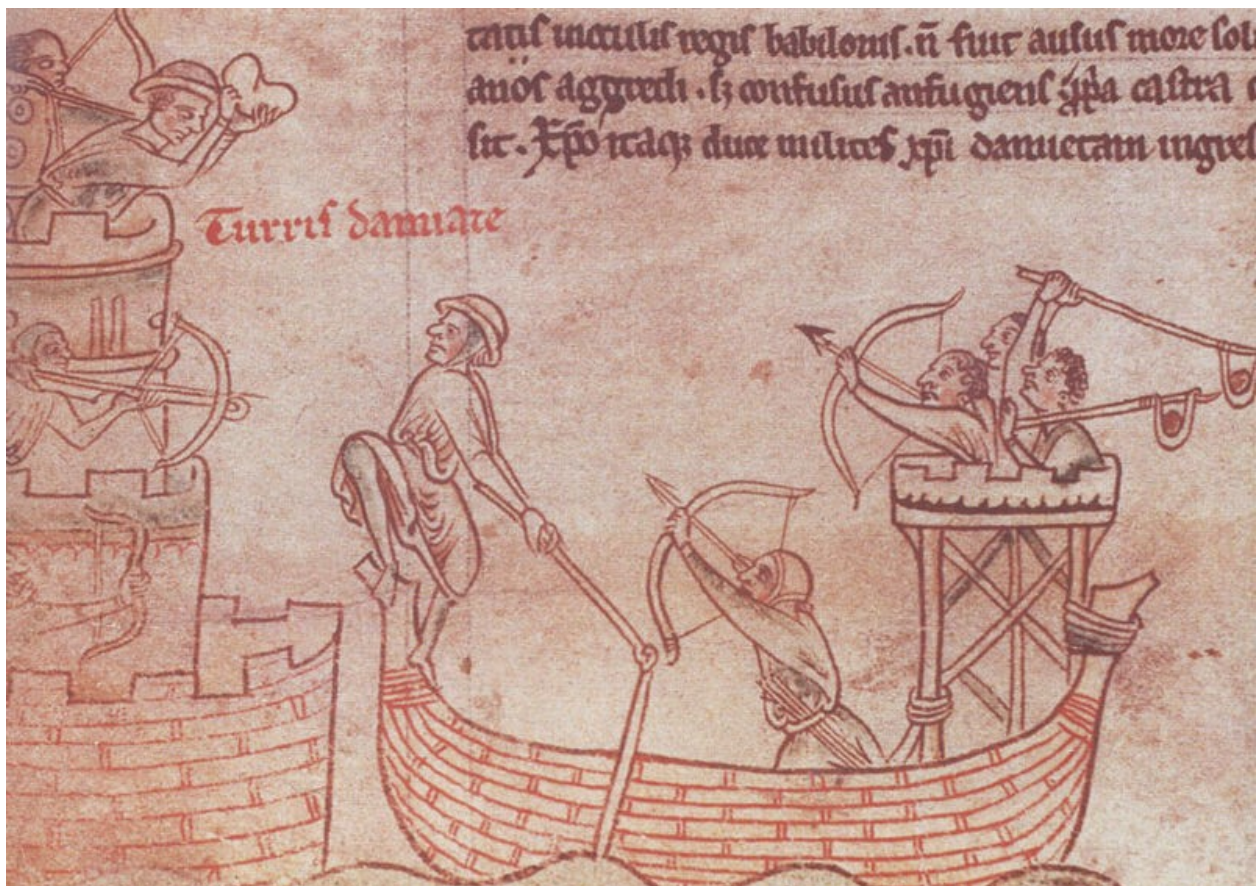 tatis inoculis regis babilonis. n̄ fuit ausus more soli
anos aggredi. sȝ confusus aufugiens ꝓp̄a castra
sit. Xp̄o itaqȝ duce milites xp̄i damietam ingres
Turris damiate